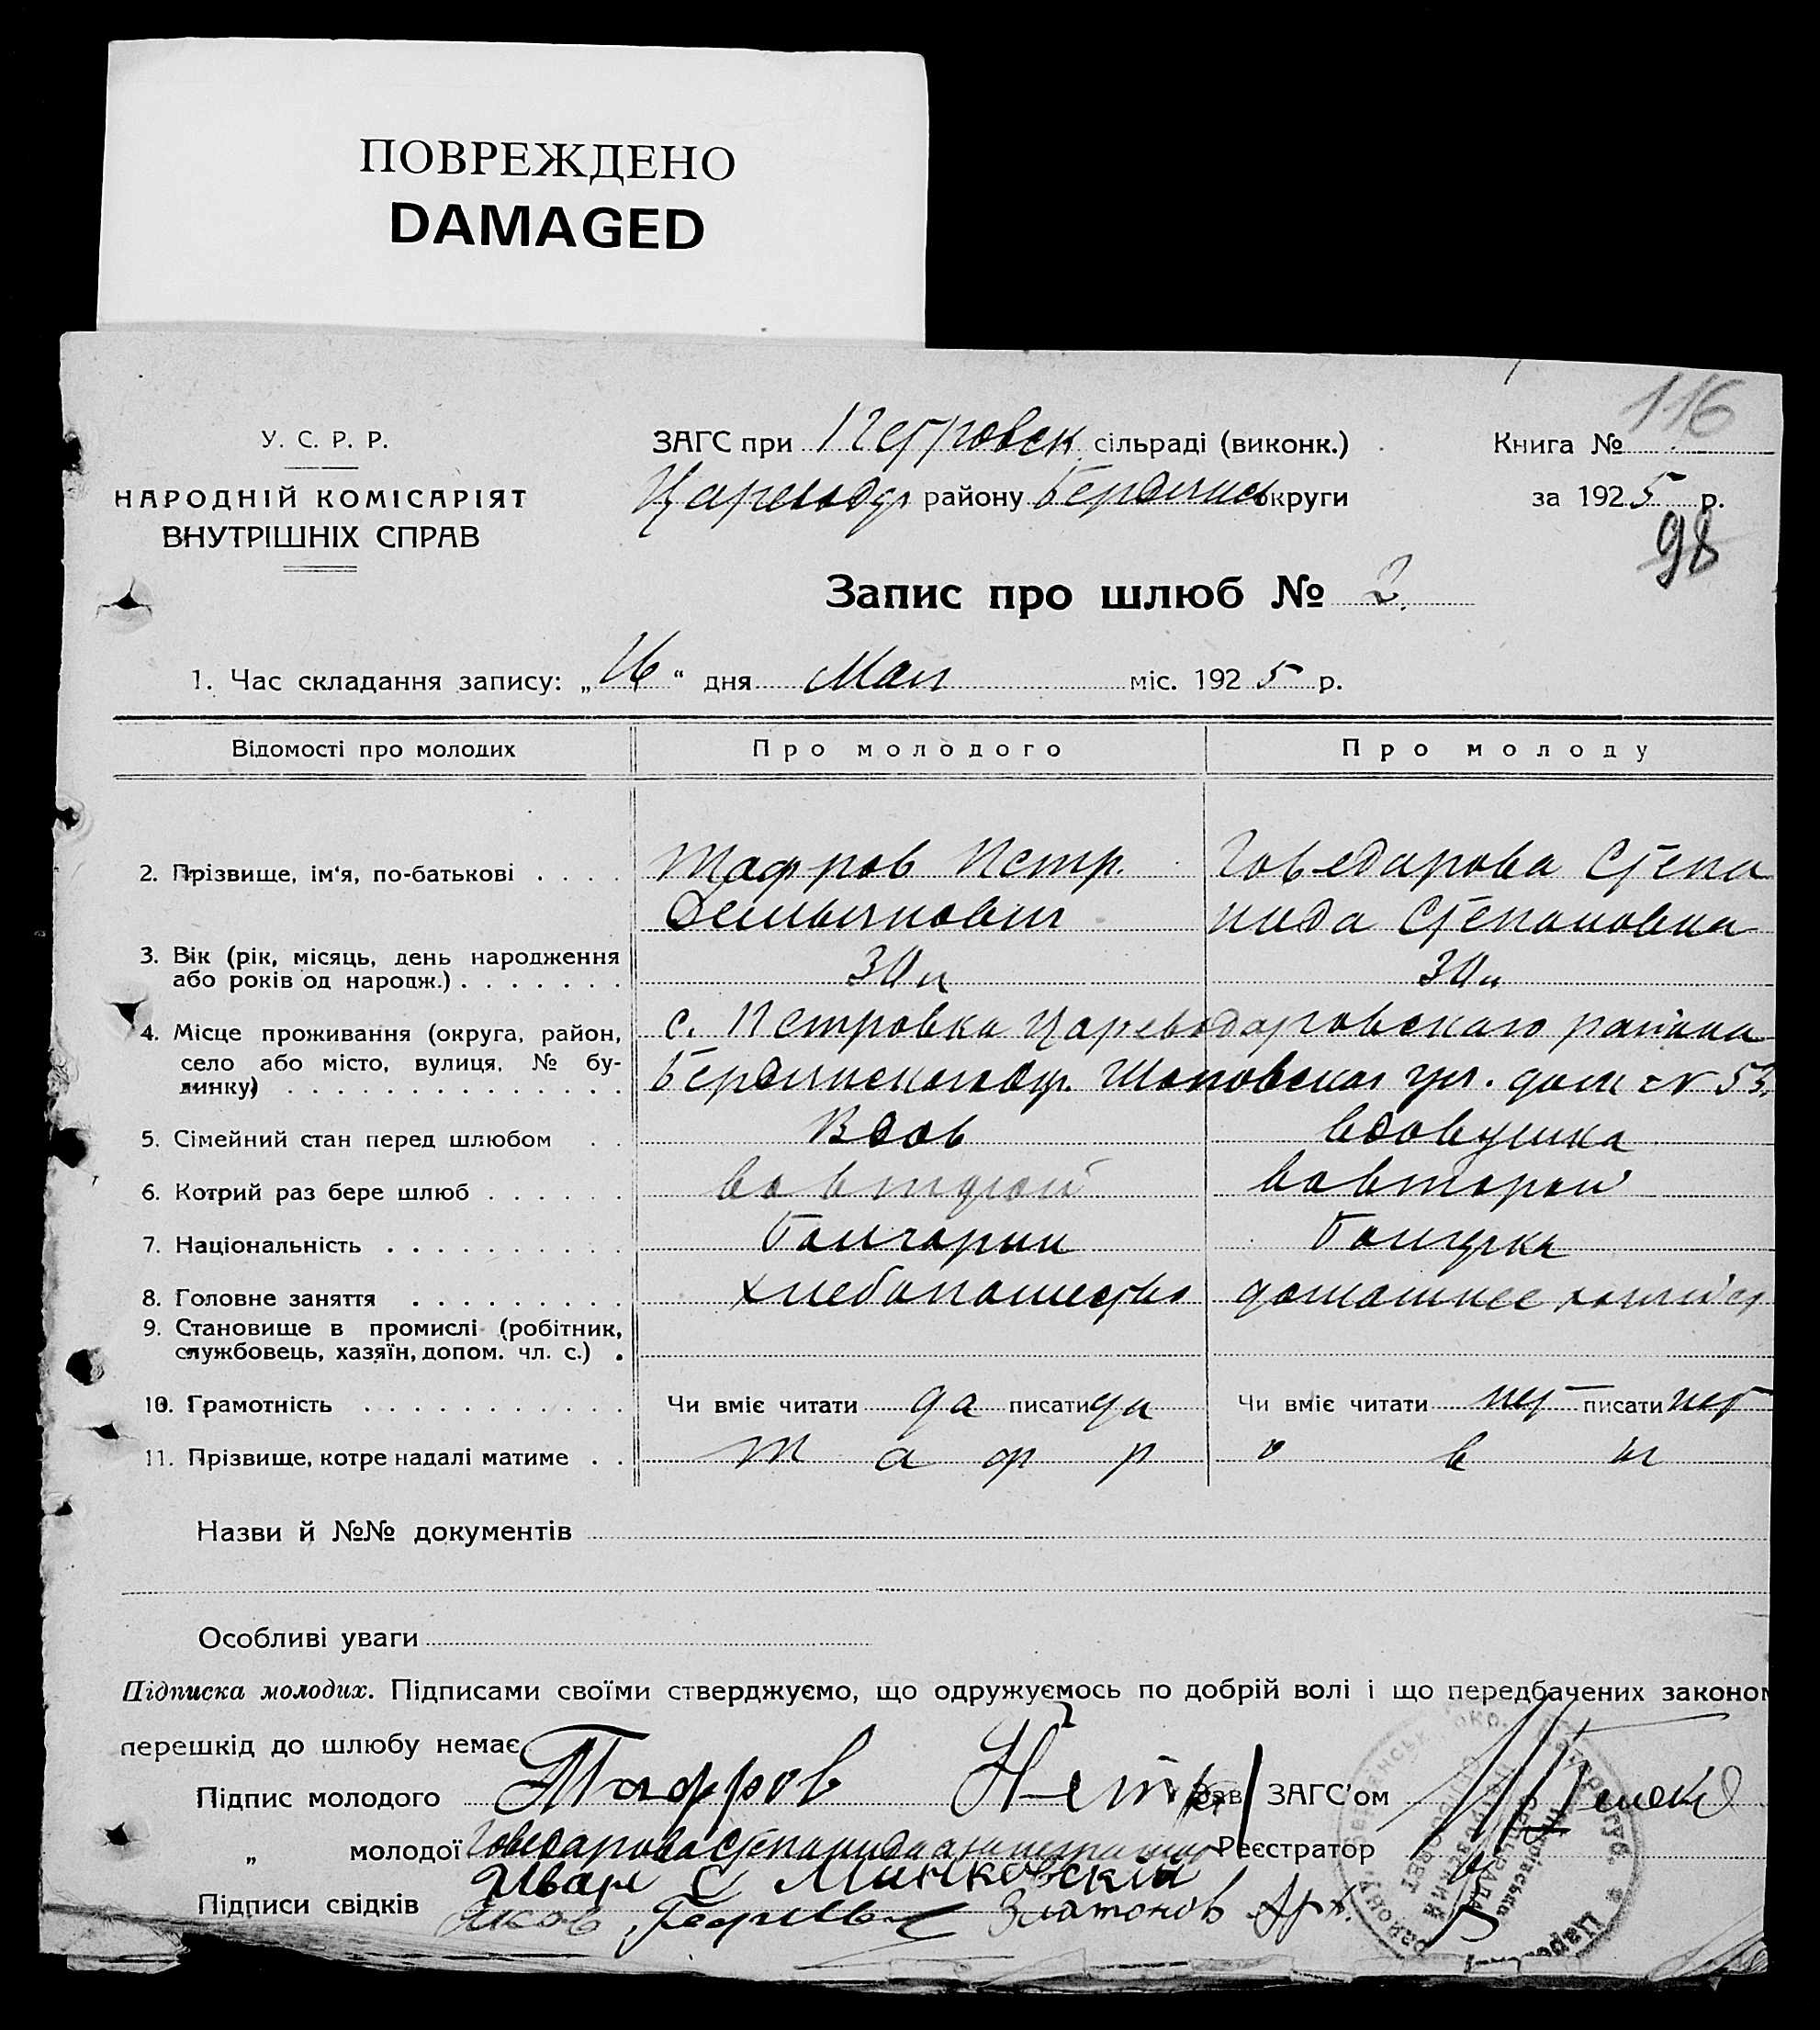 ПОВРЕЖДЕНО
DAMAGED
116
У. С. Р. Р.
НАРОДНІЙ КОМІСАРІЯТ
ВНУТРІШНІХ СПРАВ
ЗАГС при Петровск сільраді (виконк.)
Царевод району Бердянск округи
Книга №
за 1925 р.
98
Запис про шлюб № 2.
1. Час складання запису: „16“ дня Мая міс. 1925 р.
Відомості про молодих Про молодого Про молоду
2. Прізвище, ім'я, по-батькові Тафров Петр. Говедарова Степа
Демьянович нида Степановна
3. Вік (рік, місяць, день народження
або років од народж.) 30 л 30 л
4. Місце проживання (округа, район, с. Петровка Цареводаровскаго района
село або місто, вулиця, № бу-
динку) Бердянскаго окр. ул. дом № 53.
5. Сімейний стан перед шлюбом Вдов вдовушка
6. Котрий раз бере шлюб во второй во второй
7. Національність Болгарин Болгарка
8. Головне заняття хлебопашество домашнее хозяйст
9. Становище в промислі (робітник,
службовець, хазяїн, допом. чл. с.)
10. Грамотність Чи вміє читати да писати да Чи вміє читати нет писати нет
11. Прізвище, котре надалі матиме Т а ф р о в ы
Назви й №№ документів
Особливі уваги
Підписка молодих. Підписами своїми стверджуємо, що одружуємось по добрій волі і що передбачених законом
перешкід до шлюбу немає
Підпис молодого Тафров Петр Зав. ЗАГС'ом
„ молодої Говедарова Степанида Реєстратор
Иван С Минковский
Підписи свідків Яков Златонов